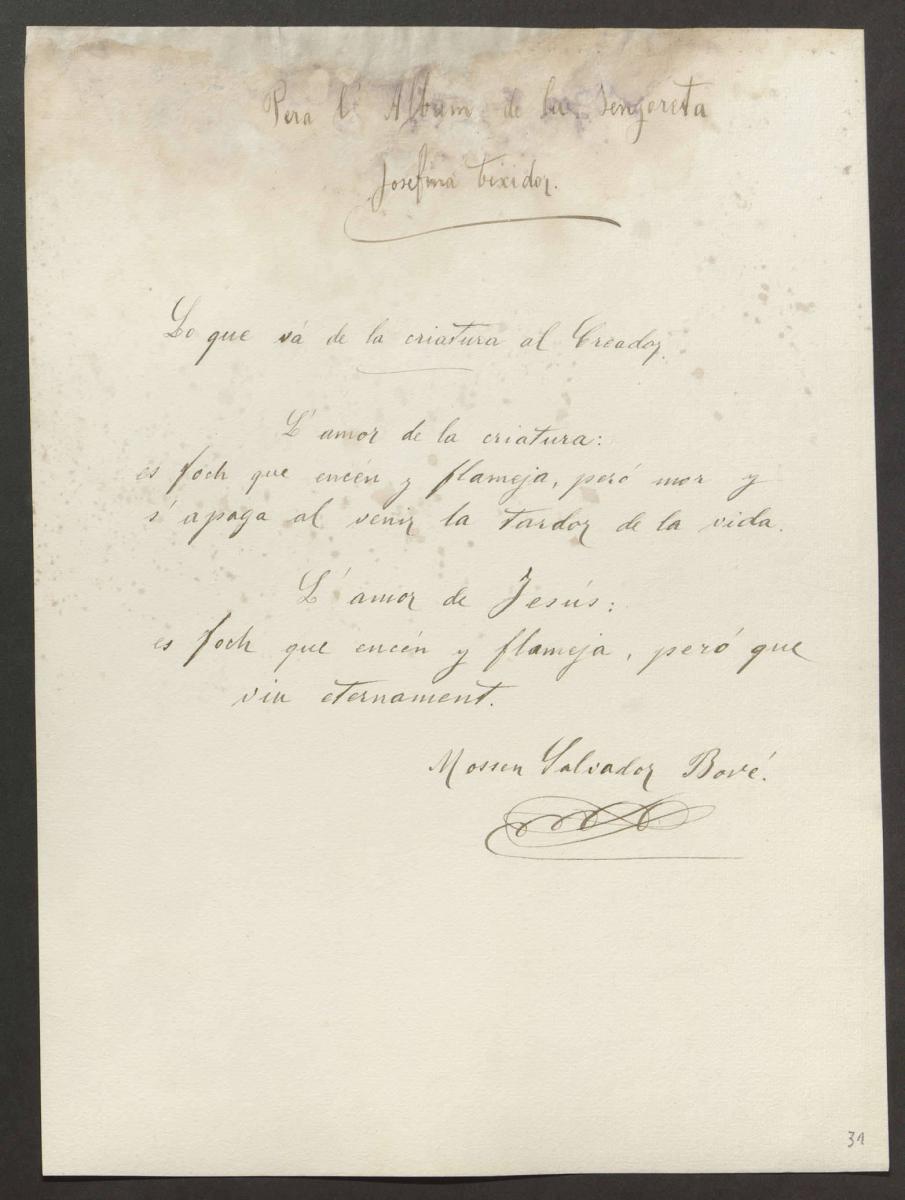 Pera l' Album de la Senyoreta
Josefina Tixidor.
Lo que vá de la criatura al Creador.
L' amor de la criatura:
es foch que encén y flameja, peró mor y
s' apaga al venir la tardor de la vida.
L' amor de Jesús:
es foch que encén y flameja, peró que
viu eternament.
Mossen Salvador Bové.
31